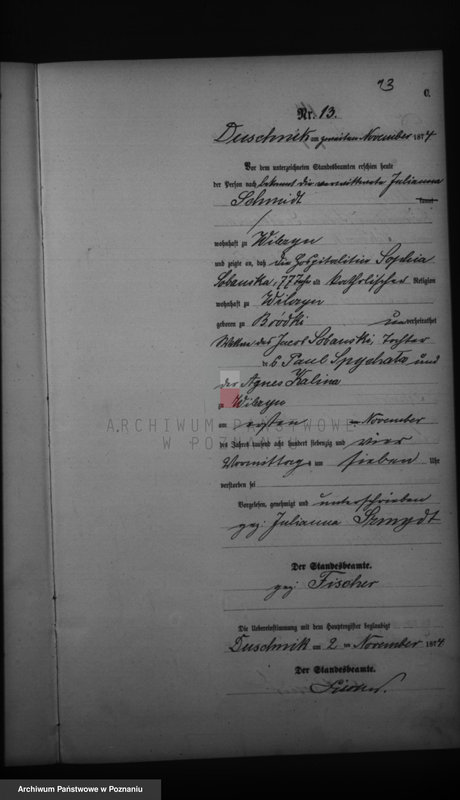 73
C.
Nr. 13.
Duschnik am zweiten November 1874
Vor dem unterzeichneten Standesbeamten erschien heute
der Person nach bekannt die verwittwete Julianna
Schmidt
kannt
wohnhaft zu Wilczyn
und zeigte an, daß die Hospitalitin Sophia
Sobanska, 77 Jahr alt katholischer Religion
wohnhaft zu Wilczyn
geboren zu Brodki unverheirathet
Wittwe des Jacob Sobanski, Tochter
des Paul Spychala und
der Agnes Kalina
zu Wilczyn
am ersten November
des Jahres tausend acht hundert siebenzig und vier
Vormittags um sieben Uhr
verstorben sei
Vorgelesen, genehmigt und unterschrieben
gez: Julianna Szmydt
Der Standesbeamte.
gez: Fischer
Die Uebereinstimmung mit dem Hauptregister beglaubigt
Duschnik am 2 ten November 1874
Der Standesbeamte.
Fischer.
ARCHIWUM PAŃSTWOWE
W POZNANIU
Archiwum Państwowe w Poznaniu